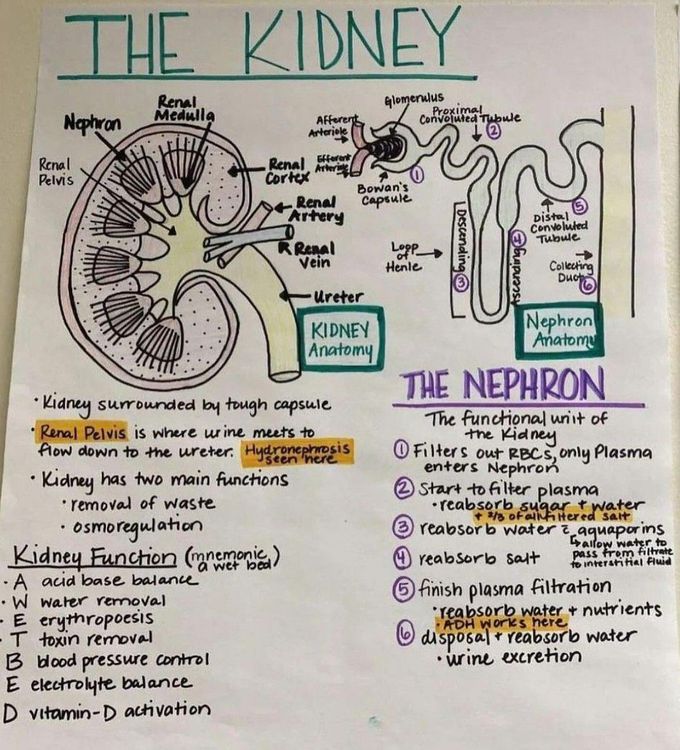 THE KIDNEY
Nephron
Renal
Medulla
Renal
Pelvis
Renal
Cortex
Renal
Artery
Renal
Vein
Ureter
KIDNEY
Anatomy
Afferent
Arteriole
Efferent
Arteriole
Glomerulus
Proximal
Convoluted Tubule
②
①
Bowan's
Capsule
Loop
of
Henle
Descending
③
④
Ascending
Distal
Convoluted
Tubule
⑤
Collecting
Duct
⑥
Nephron
Anatomy
• Kidney surrounded by tough capsule
• Renal Pelvis is where urine meets to
flow down to the ureter. Hydronephrosis
seen here
• Kidney has two main functions
• removal of waste
• osmoregulation
Kidney Function (mnemonic,
a wet bed)
• A acid base balance
• W water removal
• E erythropoesis
• T toxin removal
B blood pressure control
E electrolyte balance
D vitamin-D activation
THE NEPHRON
The functional unit of
the Kidney
① Filters out RBCs, only Plasma
enters Nephron
② Start to filter plasma
• reabsorb sugar + water
+ 2/3 of all filtered salt
③ reabsorb water c̄ aquaporins
↳ allow water to
pass from filtrate
to interstitial fluid
④ reabsorb salt
⑤ finish plasma filtration
• reabsorb water + nutrients
• ADH works here
⑥ disposal + reabsorb water
• urine excretion